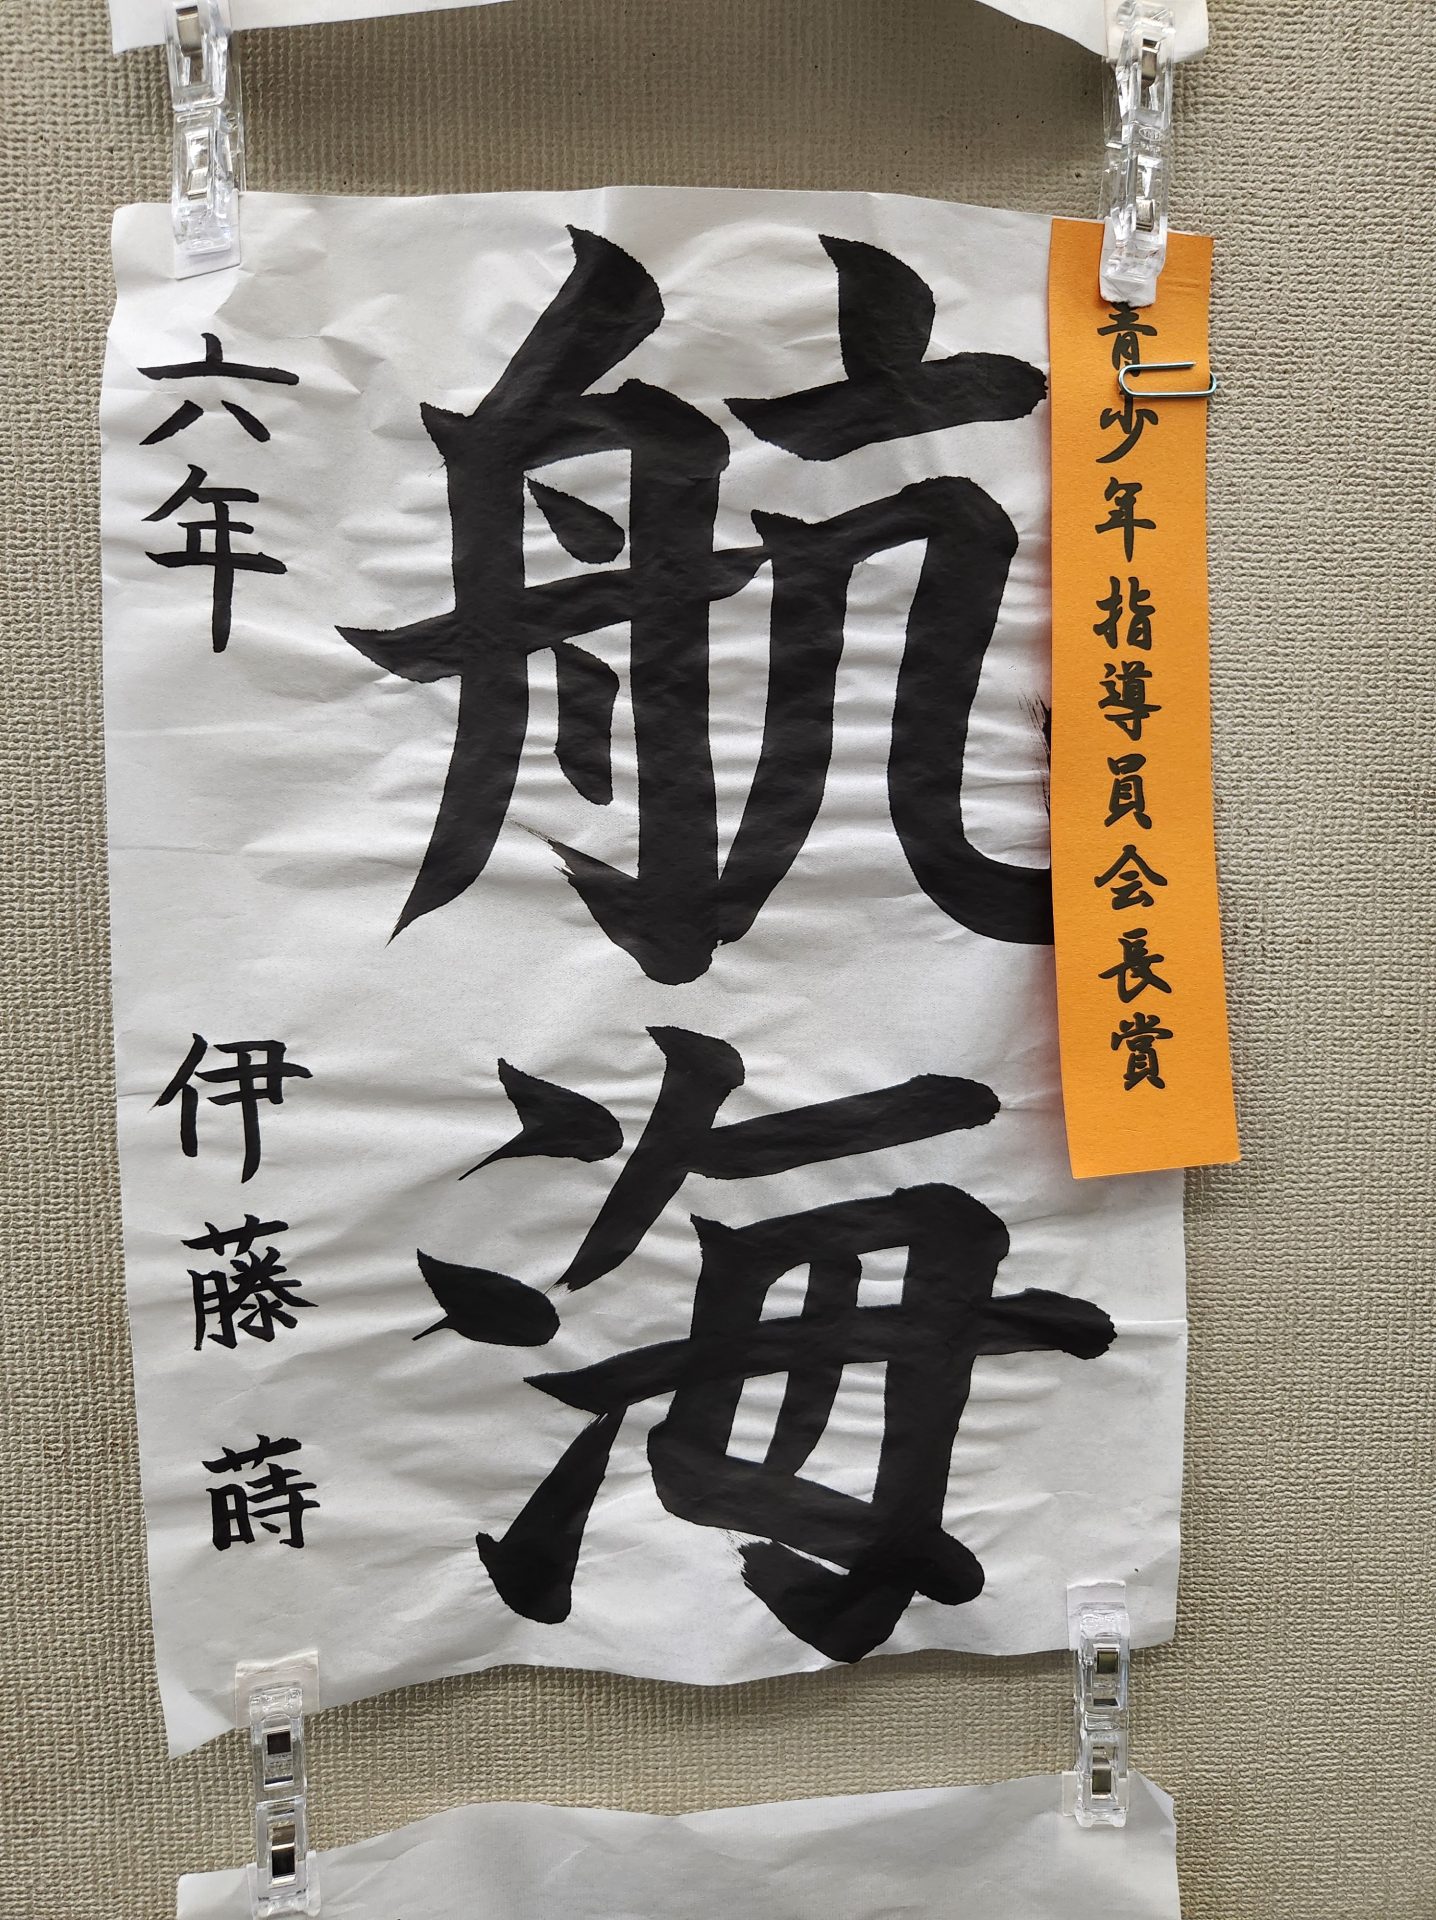 青少年指導員会長賞
航海
六年
伊藤蒔